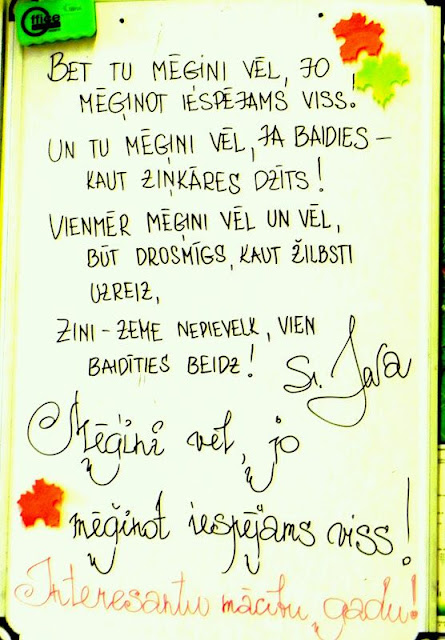 Office
BET TU MĒĢINI VĒL, JO
MĒĢINOT IESPĒJAMS VISS!
UN TU MĒĢINI VĒL, JA BAIDIES –
KAUT ZIŅKĀRES DZĪTS!
VIENMĒR MĒĢINI VĒL UN VĒL,
BŪT DROSMĪGS, KAUT ŽILBSTI
UZREIZ,
ZINI – ZEME NEPIEVELK, VIEN
BAIDĪTIES BEIDZ!
Mēģini vēl, jo
mēģinot iespējams viss!
Interesantu mācību gadu!